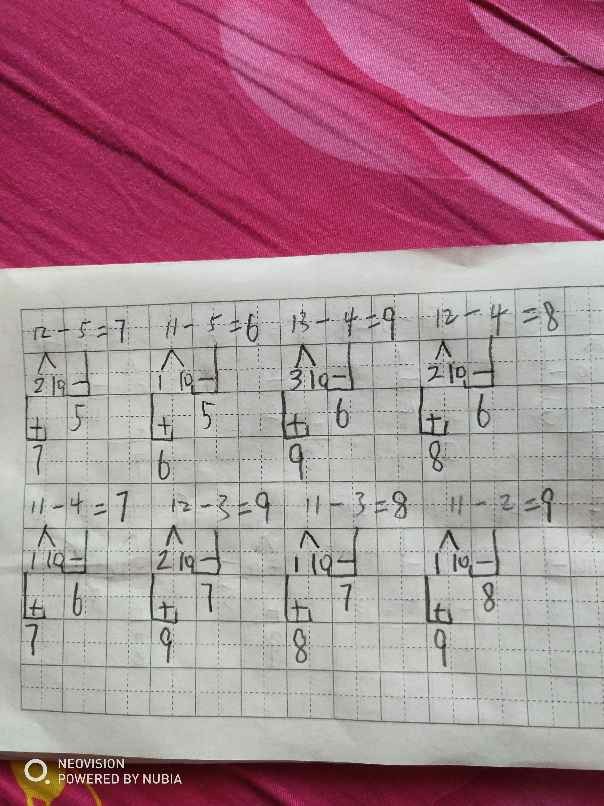 12-5=7 11-5=6 13-4=9 12-4=8
2 10 - 1 10 - 3 10 - 2 10 -
+ 5 + 5 + 6 + 6
7 6 9 8
11-4=7 12-3=9 11-3=8 11-2=9
1 10 - 2 10 - 1 10 - 1 10 -
+ 6 + 7 + 7 + 8
7 9 8 9
NEOVISION
POWERED BY NUBIA